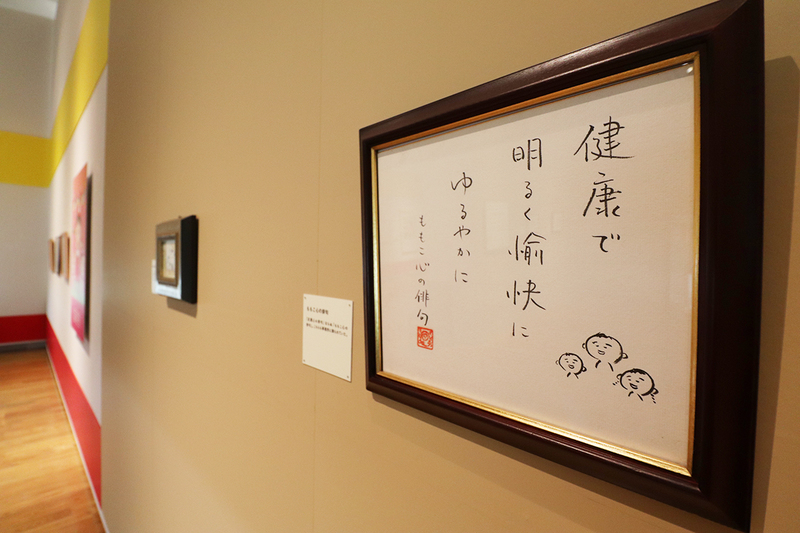 健康で
明るく愉快に
ゆるやかに
ももこ心の俳句
ももこ心の俳句